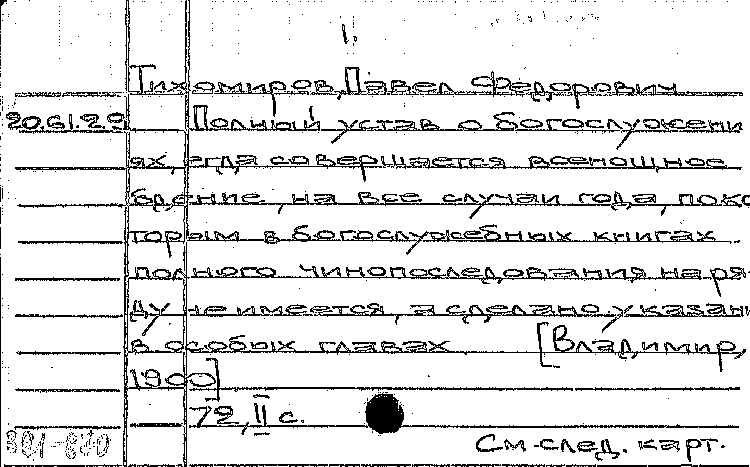 1.
Тихомиров, Павел Федорович
20.61.2.9 Полный устав о богослужени
ях, егда совершается всенощное
бдение, на все случаи года, по ко
торым в богослужебных книгах
полного чинопоследования на ря-
ду не имеется, а сделано указани
в особых главах. [Владимир,
1900]
72, II с.
См. след. карт.